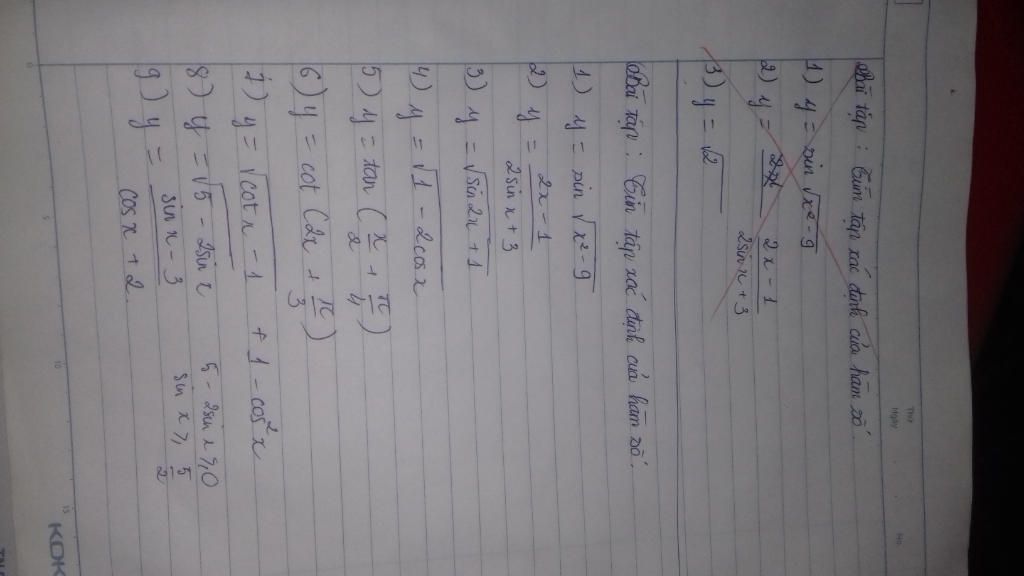 Thứ
Ngày
No.
Bài tập : Tìm tập xác định của hàm số.
1) y = sin √x² - 9
2) y = 2x - 1 / 2sin x + 3
3) y = √2
Bài tập : Tìm tập xác định của hàm số.
1) y = sin √x² - 9
2) y = 2x - 1 / 2sin x + 3
3) y = √sin 2x + 1
4) y = √1 - 2cos x
5) y = tan (x/2 + π/4)
6) y = cot (2x + π/3)
7) y = √cot x - 1 + 1 - cos² x
8) y = √5 - 2sin x
5 - 2sin x ⩾ 0
sin x ⩾ 5/2
9) y = sin x - 3 / cos x + 2
0
5
10
15
KOK